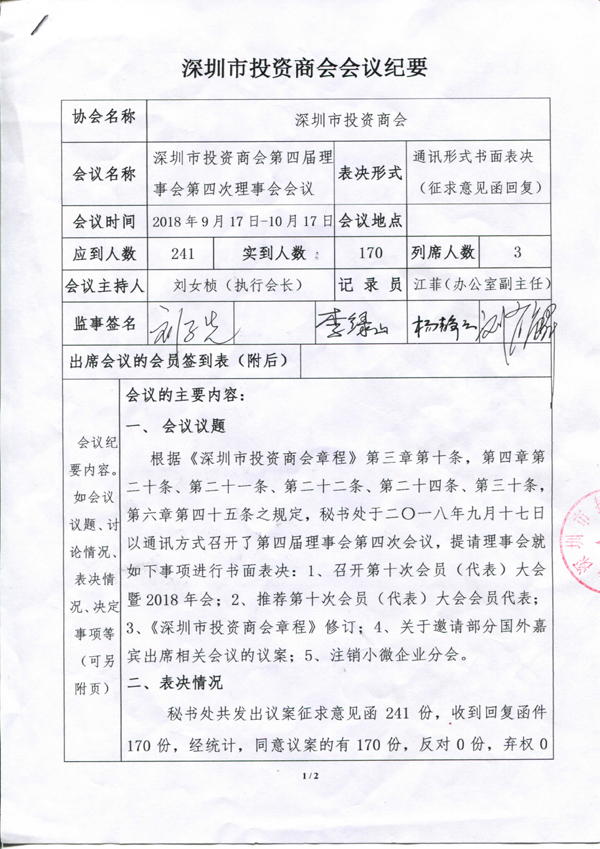 深圳市投资商会会议纪要
协会名称 深圳市投资商会
会议名称 深圳市投资商会第四届理事会第四次理事会会议 表决形式 通讯形式书面表决（征求意见函回复）
会议时间 2018年9月17日-10月17日 会议地点
应到人数 241 实到人数 170 列席人数 3
会议主持人 刘女桢（执行会长） 记录员 江菲（办公室副主任）
监事签名 李绿山
出席会议的会员签到表（附后）
会议纪
要内容。
如会议
议题、讨
论情况、
表决情
况、决定
事项等
（可另
附页）
会议的主要内容：
一、 会议议题
根据《深圳市投资商会章程》第三章第十条，第四章第
二十条、第二十一条、第二十二条、第二十四条、第三十条，
第六章第四十五条之规定，秘书处于二〇一八年九月十七日
以通讯方式召开了第四届理事会第四次会议，提请理事会就
如下事项进行书面表决：1、召开第十次会员（代表）大会
暨2018年会；2、推荐第十次会员（代表）大会会员代表；
3、《深圳市投资商会章程》修订；4、关于邀请部分国外嘉
宾出席相关会议的议案；5、注销小微企业分会。
二、表决情况
秘书处共发出议案征求意见函241份，收到回复函件
170份，经统计，同意议案的有170份，反对0份，弃权0
1/2
深圳市